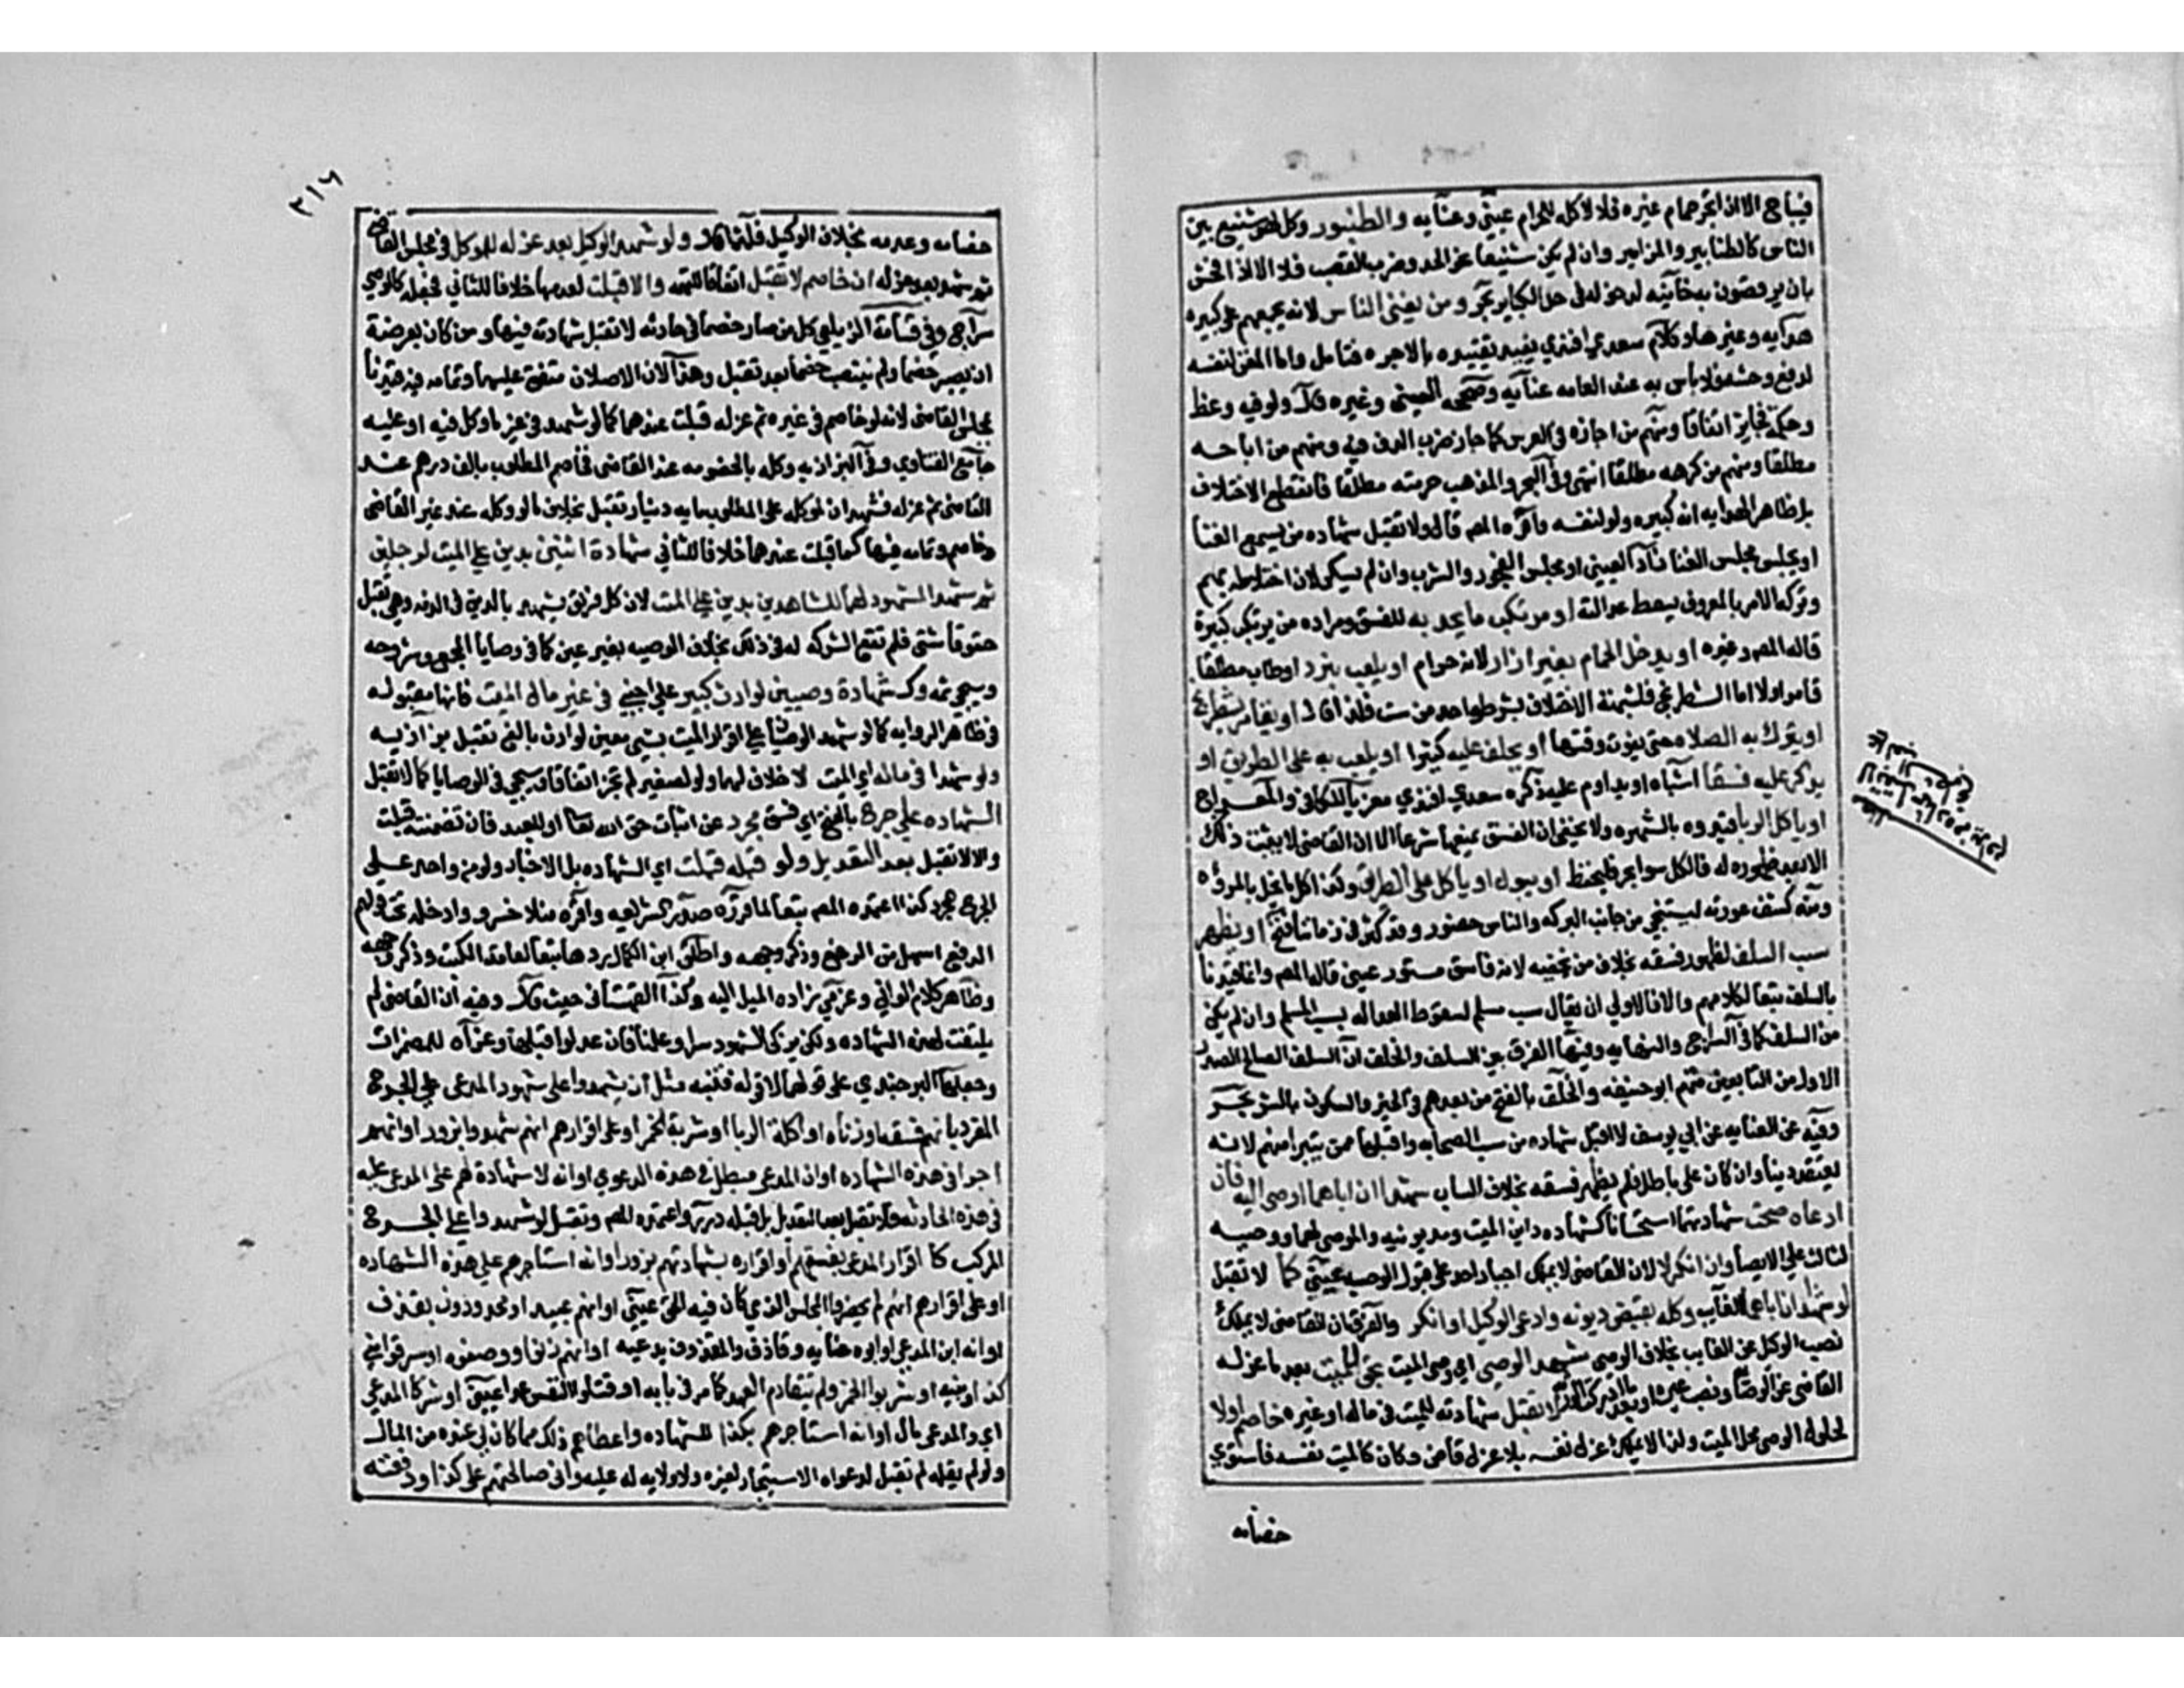 فيباح الا اذا جر حمام غيره فلا لاكله للحرام عيني وعنايه والطنبور وكل لهو شنيع بين
الناس كالطنابير والمزامير وان لم يكن شنيعا نحو الحدو وضرب القصب فلا الا اذا فحش
بان يرقصون به خانيه لدخوله في حد الكباير بحر ومن يغني الناس لانه يجمعهم على كبيره
هدايه وغيرها وكلام سعدي افندي يفيد تقييده بالاجره فتامل واما المغني لنفسه
لدفع وحشه فلا باس به عند العامه عنايه وصححه العيني وغيره قال ولو فيه وعظ
وحكمة فجايز اتفاقا ومنهم من اجازه في العرس كما جاز ضرب الدف فيه ومنهم من اباحه
مطلقا ومنهم من كرهه مطلقا انتهى وفي البحر والمذهب حرمته مطلقا فانقطع الاختلاف
بل ظاهر الهدايه انه كبيره ولو لنفسه واقره المص قال ولا تقبل شهاده من يسمع الغنا
او يجلس مجلس الغنا زاد العيني او مجلس الفجور والشرب وان لم يسكر لان اختلاطه بهم
وتركه الامر بالمعروف يسقط عدالته او مرتكب ما يحد به للفسق ومراده من يرتكب كبيرة
قاله المص وغيره او يدخل الحمام بغير ازار لانه حرام او يلعب بنرد او طاب مطلقا
قامر او لا اما الشطرنج فلشبهة الاختلاف بشرط واحد من ست فلذا قال او يقامر بشطرنج
او يترك به الصلاة حتى يفوت وقتها او يحلف عليه كثيرا او يلعب به على الطريق او
يذكر عليه فسقا اشباه او يداوم عليه ذكره سعدي افندي معزيا للكافي والمعراج
او ياكل الربا قيدوه بالشهره ولا يخفى ان الفسق يمنعها شرعا الا ان القاضي لا يثبت ذلك
الا بعد ظهوره له فالكل سوا بحر فليحفظ او يبول او ياكل على الطريق وكذا كل ما يخل بالمروه
ومنه كشف عورته ليستنجي من جانب البركه والناس حضور وقد كثر في زماننا فتح او يظهر
سب السلف لظهور فسقه بخلاف من يخفيه لانه فاسق مستور عيني قال المص وانما قيدنا
بالسلف تبعا لكلامهم والا فالاولى ان يقال سب مسلم لسقوط العداله بسب المسلم وان لم يكن
من السلف كما في السراج والنهايه وفيها الفرق بين السلف والخلف ان السلف الصالح الصدر
الاول من التابعين منهم ابو حنيفه والخلف بالفتح من بعدهم في الخير والسكون بالشر بحر
وفيه عن العنايه عن ابي يوسف لا اقبل شهاده من سب الصحابه واقبلها ممن يتبرا منهم لانه
يعتقد دينا وان كان على باطل فلم يظهر فسقه بخلاف الساب شهدا ان اباهما اوصى اليه فان
ادعاه صحت شهادتهما استحسانا كشهاده داين الميت ومديونيه والموصى لهما ووصييه
لثالث على الايصا وان انكر لا لان القاضي لا يملك اجبار احد على قبول الوصيه عيني كما لا تقبل
لو شهدا ان اباهما الغايب وكله بقبض ديونه وادعى الوكيل او انكر والفرق ان القاضي لا يملك
نصب الوكيل عن الغايب بخلاف الوصي شهد الوصي اي وصي الميت بحق للميت بعد ما عزله
القاضي عن الوصايا ونصب غيره او بعد ما ادرك الورثه لا تقبل شهادته للميت في ماله او غيره خاصم او لا
لحلول الوصي محل الميت ولذا لا يملك عزل نفسه بلا عزل قاض وكان كالميت نفسه فاستوى
خصامه
٣١٦
خصامه وعدمه بخلاف الوكيل فلذا قال ولو شهد الوكيل بعد عزله للموكل في مجلس القاضي
ثم شهد بعد عزله ان خاصم لا تقبل اتفاقا للتهمه والا قبلت لعدمها خلافا للثاني فجعله كالوصي
سراج وفي قسامة الزيلعي كل من صار خصما في حادثه لا تقبل شهادته فيها ومن كان بعرضية
ان يصير خصما ولم ينتصب خصما بعد تقبل وهذان الاصلان متفق عليهما وتمامه فيه قيدنا
بمجلس القاضي لانه لو خاصم في غيره ثم عزله قبلت عندهما كما لو شهد في غير ما وكل فيه او عليه
جامع الفتاوي وفي البزازيه وكله بالخصومه عند القاضي فخاصم المطلوب بالف درهم عند
القاضي ثم عزله فشهد ان لموكله على المطلوب مايه دينار تقبل بخلاف ما لو وكله عند غير القاضي
وخاصم وتمامه فيها كما قبلت عندهما خلافا للثاني شهادة اثنين بدين على الميت لرجلين
ثم شهد المشهود لهما للشاهدين بدين على الميت لان كل فريق يشهد بالدين في الذمه وهي تقبل
حقوقا شتى فلم تقع الشركه له في ذلك بخلاف الوصيه بغير عين كما في وصايا المجمع وشرحه
وسيجي ثمه وكشهادة وصيين لوارث كبير على اجنبي في غير مال الميت فانها مقبوله
في ظاهر الروايه كما لو شهد الوصيان على اقرار الميت بشي معين لوارث بالغ تقبل بزازيه
ولو شهدا في ماله اي الميت لا خلافا لهما ولو لصغير لم تجز اتفاقا وسيجي في الوصايا كما لا تقبل
الشهاده على جرح بالفتح اي فسق مجرد عن اثبات حق الله تعالى او للعبد فان تضمنته قبلت
والا لا تقبل بعد التعديل ولو قبله قبلت اي الشهاده بل الاخبار ولو من واحد على
الجرح المجرد كذا اعتمده المص تبعا لما قرره صدر الشريعه واقره منلا خسرو وادخله تحت قولهم
الدفع اسهل من الرفع وذكر وجهه واطلق ابن الكمال ردها تبعا لعامة الكتب وذكر وجهه
وظاهر كلام الواني وعزمي زاده الميل اليه وكذا القهستاني حيث قال وفيه ان القاضي لم
يلتفت لهذه الشهاده ولكن يزكي الشهود سرا وعلنا فان عدلوا قبلها وعزاه للمضمرات
وجعله البرجندي على قولهما لا قوله فتنبه مثل ان يشهدوا على شهود المدعي على الجرح
المفرد بانهم فسقه او زناه او اكلة الربا او شربة الخمر او على اقرارهم انهم شهدوا بزور او انهم
اجرا في هذه الشهاده او ان المدعي مبطل في هذه الدعوي او انه لا شهادة لهم على المدعى عليه
في هذه الحادثه فلا تقبل بعد التعديل بل قبله درر واعتمده المص وتقبل لو شهدوا على الجرح
المركب كاقرار المدعي بفسقهم او اقراره بشهادتهم بزور او انه استاجرهم على هذه الشهاده
او على اقرارهم انهم لم يحضروا المجلس الذي كان فيه الحق عيني او انهم عبيد او محدودون بقذف
او انه ابن المدعي او ابوه عنايه وقاذف والمقذوف يدعيه او انهم زنوا ووصفوه او سرقوا مني
كذا وبينه او شربوا الخمر ولم يتقادم العهد كما مر في بابه او قتلوا النفس عمدا عيني او شركا المدعي
اي والمدعى مال او انه استاجرهم بكذا للشهاده واعطاهم ذلك مما كان لي عنده من المال
ولو لم يقله لم تقبل لدعواه الاستيجار لغيره ولا ولايه له عليه واني صالحتهم على كذا ودفعته